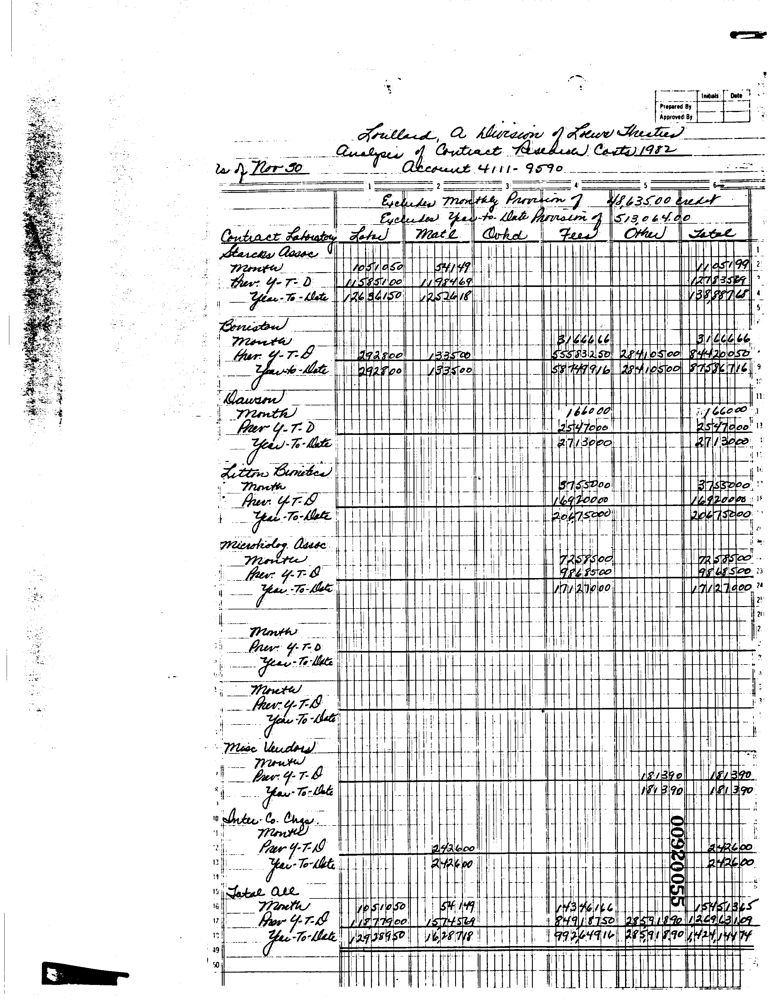 Initials Date
Prepared By
Approved By
Lorillard, A Division of Loews Theatres
Analysis of Contract Research Costs 1982
As of Nov 30 Account 4111-9590
1 2 3 4 5 6
Excludes Monthly Provision of 48,635.00 credit
Excludes Year-to-Date Provision of 513,064.00
Contract Laboratory Labor Mat'l Ovhd Fees Other Total
Starcks Assoc
Month 1051050 54149 1105199
Prev. Y-T-D 11585100 1198469 12783569
Year-To-Date 12636150 1252618 13888768
Bioniston
Month 3166666 3166666
Prev. Y-T-D 292800 133500 55583250 28410500 84420050
Year-to-Date 292800 133500 58749916 28410500 87586716
Dawson
Month 166000 166000
Prev Y-T-D 2547000 2547000
Year-To-Date 2713000 2713000
Litton Bionetics
Month 3755000 3755000
Prev. Y-T-D 16920000 16920000
Year-To-Date 20675000 20675000
Microbiolog. Assoc
Month 7258500 7258500
Prev. Y-T-D 9868500 9868500
Year-To-Date 17127000 17127000
Month
Prev. Y-T-D
Year-To-Date
Month
Prev. Y-T-D
Year-To-Date
Misc Vendors
Month
Prev. Y-T-D 181390 181390
Year-To-Date 181390 181390
Inter-Co. Chgs.
Month
Prev Y-T-D 242600 242600
Year-To-Date 242600 242600
Total All
Month 1051050 54149 14346166 15451365
Prev Y-T-D 11877900 1574569 84918750 28591890 126963109
Year-To-Date 12928950 1628718 99264916 28591890 142414474
00920055